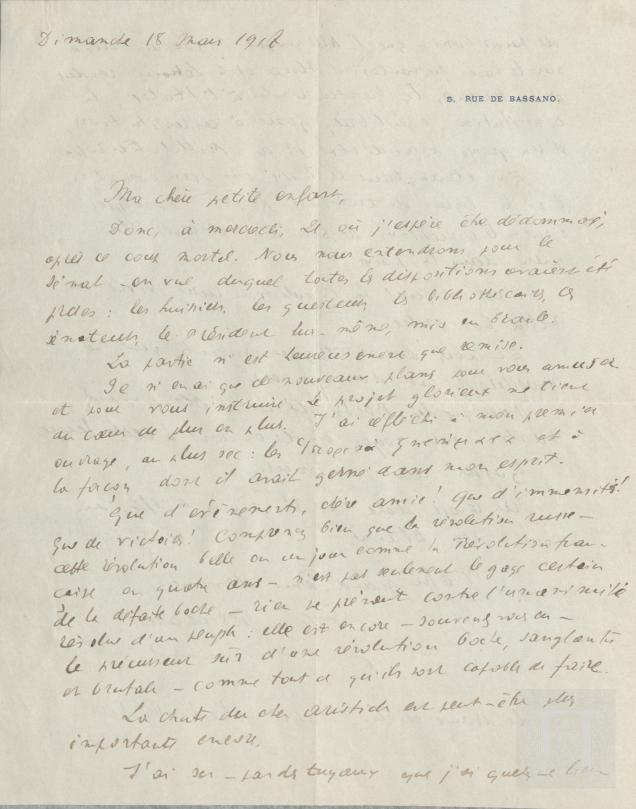 Dimanche 18 Mars 1917
5, RUE DE BASSANO.
Ma chère petite enfant,
Donc, à mercredi, 21, où j'espère être dédommagé,
après ce coup mortel. Nous nous entendrons pour le
Sénat – en vue duquel toutes les dispositions avaient été
prises : les huissiers, les questeurs, les bibliothécaires, les
sénateurs, le Président lui-même, mis en branle.
La partie n'est heureusement que remise.
Je n'en ai que de nouveaux plans pour vous amuser
et pour vous instruire. Le projet glorieux me tient
au cœur de plus en plus. J'ai réfléchi à mon premier
ouvrage, au plus sec : les et à
la façon dont il avait germé dans mon esprit.
Que d'événements, chère amie ! Que d'immensités !
Que de victoires ! Comprenez bien que la révolution russe –
cette révolution belle en un jour comme la Révolution fran-
çaise en quatre ans – n'est pas seulement le gage certain
de la défaite boche – rien ne prévaut contre l'unanimité
résolue d'un peuple : elle est encore – souvenez vous en –
le précurseur sûr d'une révolution boche, sanglante
et brutale – comme tout ce qu'ils sont capables de faire.
La chute du cher Aristide est peut-être plus
importante encore.
J'ai su – par des tuyaux que j'ai bien